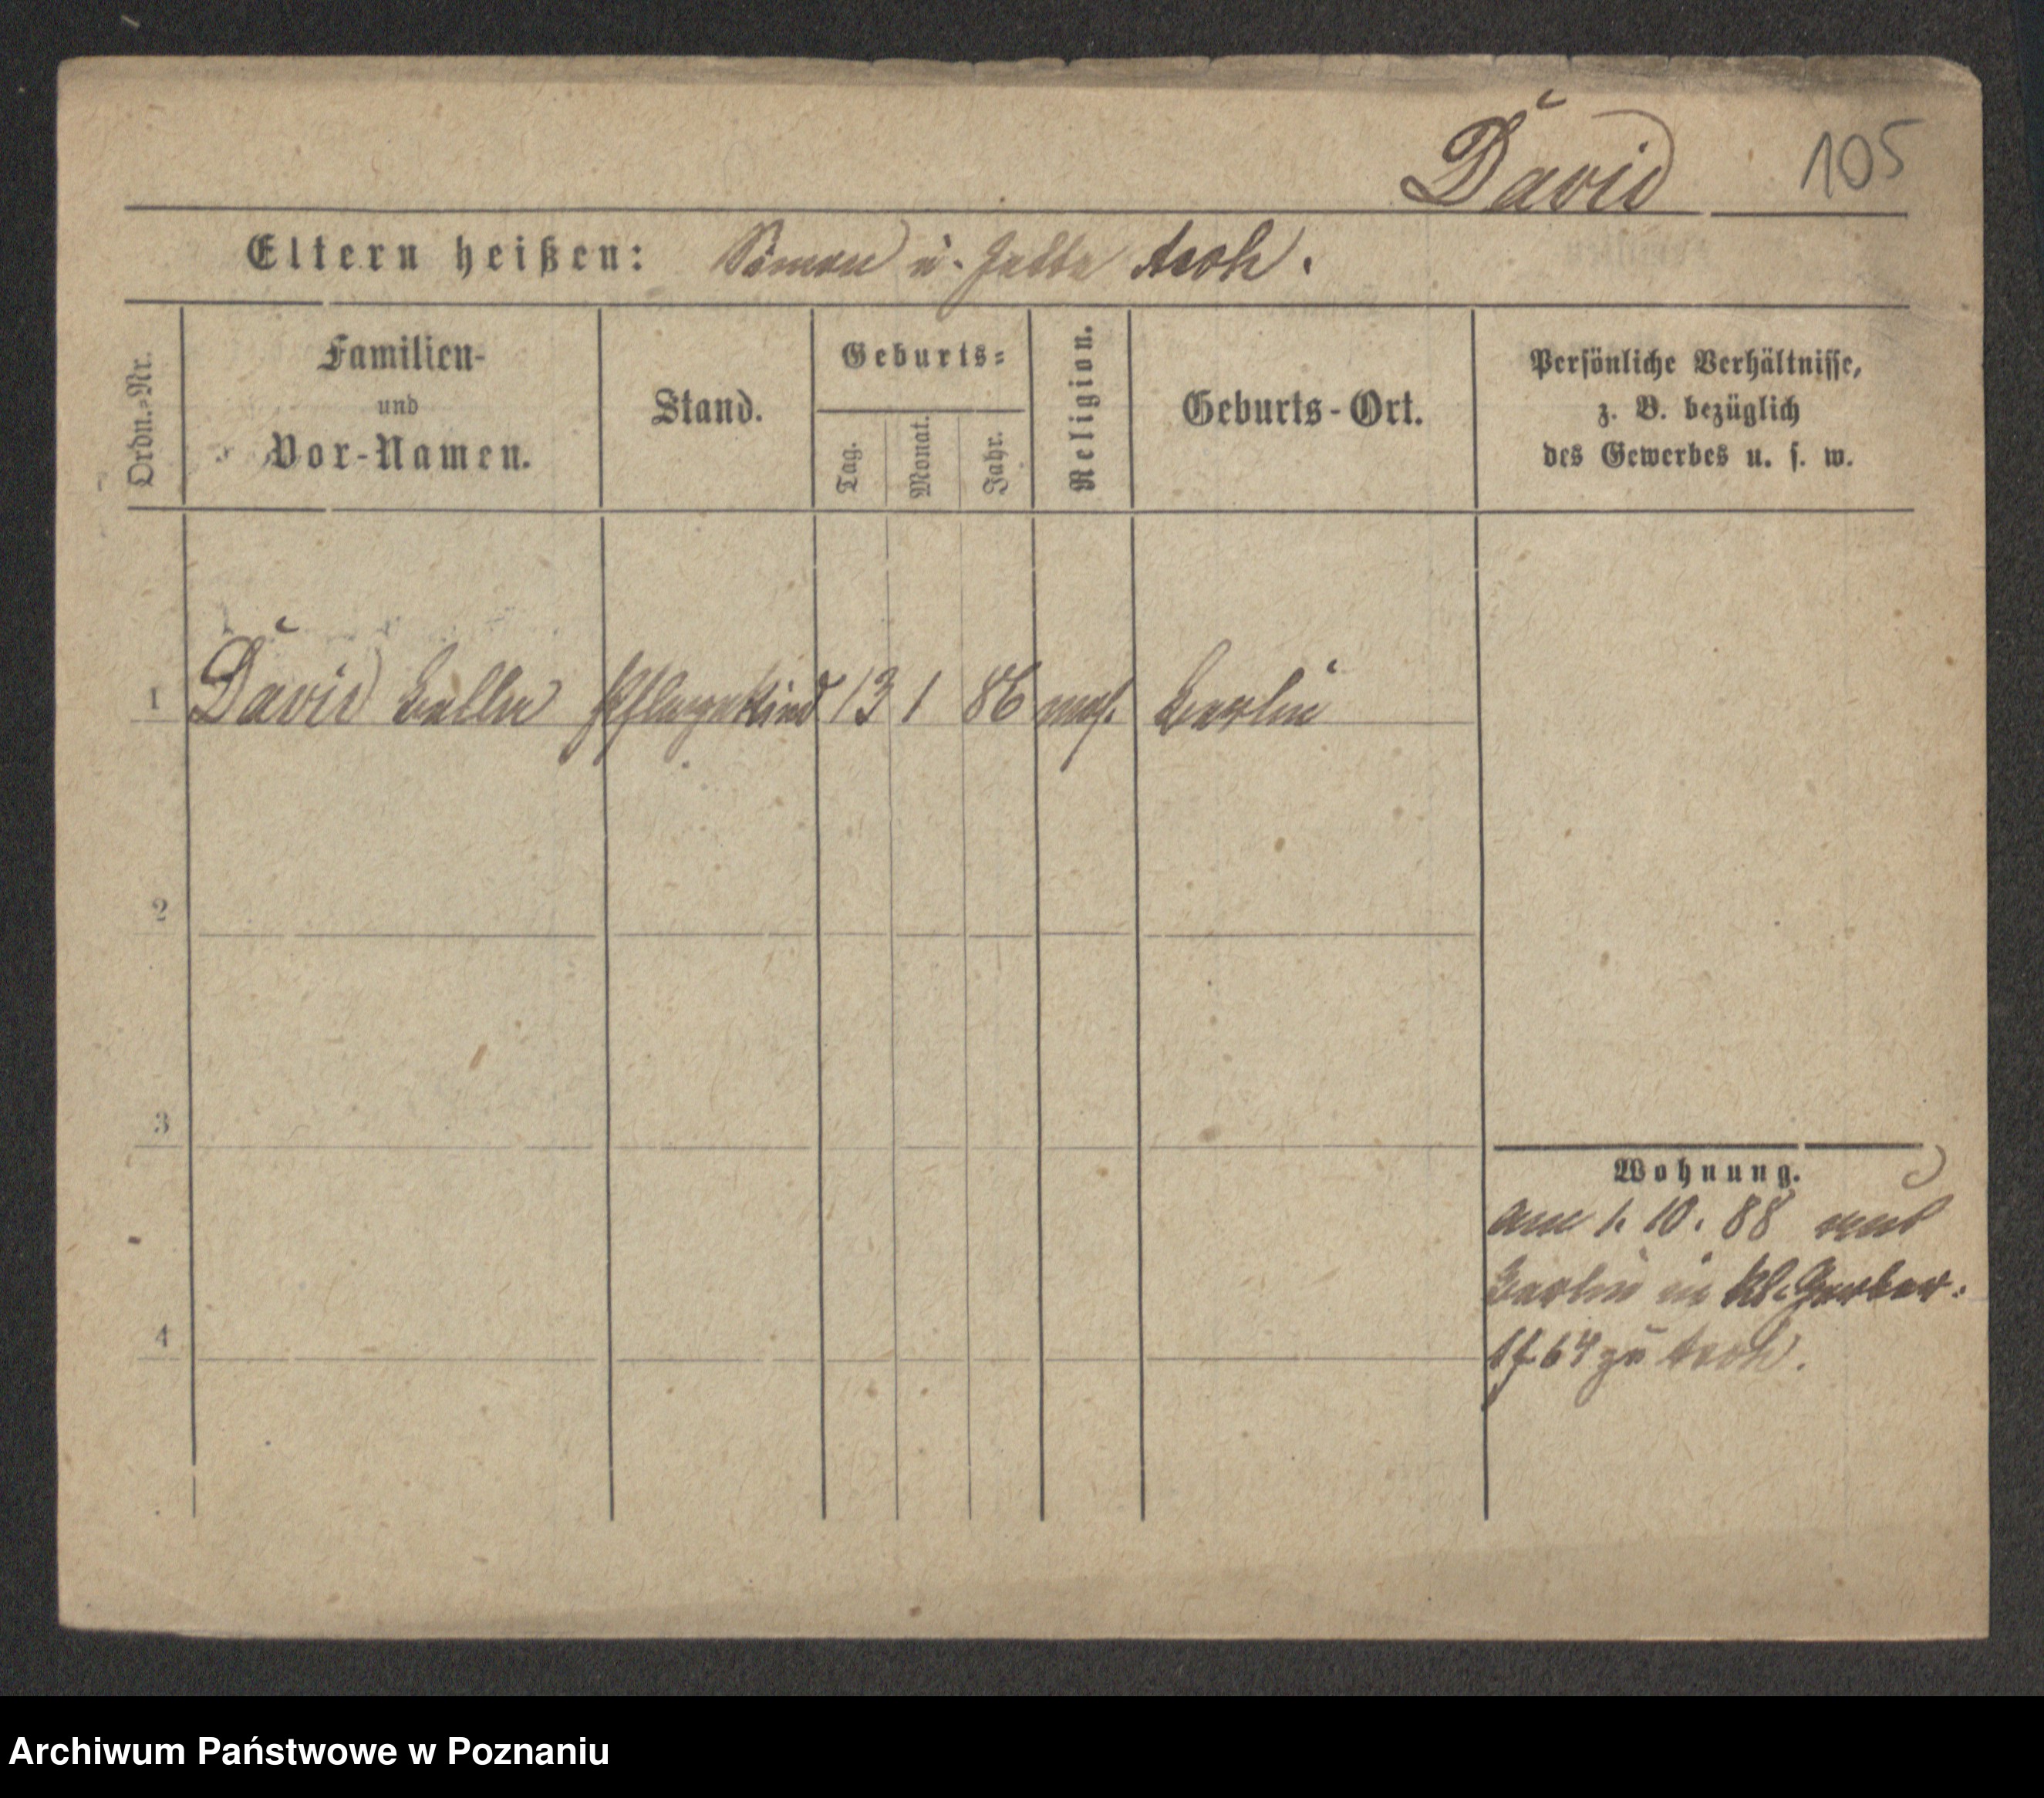 David 105
Eltern heißen: Simon u. Jette Asch.
Ordn.-Nr.
Familien-
und
Vor-Namen.
Stand.
Geburts-
Tag.
Monat.
Jahr.
Religion.
Geburts-Ort.
Persönliche Verhältnisse,
z. B. bezüglich
des Gewerbes u. s. w.
1 David Pflegekind 13 1 86 mos. Berlin
2
3
4
Wohnung.
am 1. 10. 88 von
Berlin in Kl. Gerber-
st 64 zu Asch.
Archiwum Państwowe w Poznaniu